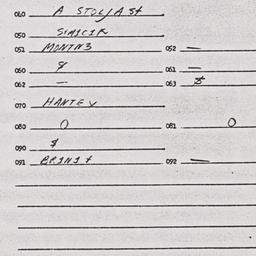 060 A STOLJA St
050
051 MONTN3 052 —
060 8 061 —
062 — 063 $
070 HANTEV
080 0 081 0
090 $
091 BRINI t 092 —